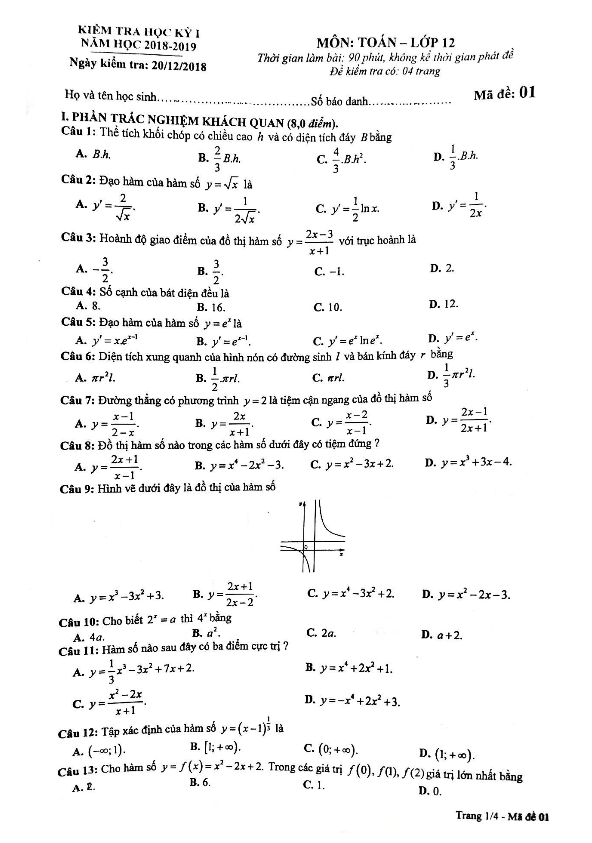 KIỂM TRA HỌC KỲ I
NĂM HỌC 2018-2019
Ngày kiểm tra: 20/12/2018
MÔN: TOÁN – LỚP 12
Thời gian làm bài: 90 phút, không kể thời gian phát đề
Đề kiểm tra có: 04 trang
Họ và tên học sinh..........................................Số báo danh........................ Mã đề: 01
I. PHẦN TRẮC NGHIỆM KHÁCH QUAN (8,0 điểm).
Câu 1: Thể tích khối chóp có chiều cao h và có diện tích đáy B bằng
A. B.h. B. 2/3 B.h. C. 4/3 .B.h². D. 1/3 .B.h.
Câu 2: Đạo hàm của hàm số y = √x là
A. y' = 2/√x. B. y' = 1/(2√x). C. y' = 1/2 ln x. D. y' = 1/(2x).
Câu 3: Hoành độ giao điểm của đồ thị hàm số y = (2x−3)/(x+1) với trục hoành là
A. −3/2. B. 3/2. C. −1. D. 2.
Câu 4: Số cạnh của bát diện đều là
A. 8. B. 16. C. 10. D. 12.
Câu 5: Đạo hàm của hàm số y = eˣ là
A. y' = x.eˣ⁻¹ B. y' = eˣ⁻¹. C. y' = eˣ ln eˣ. D. y' = eˣ.
Câu 6: Diện tích xung quanh của hình nón có đường sinh l và bán kính đáy r bằng
A. πr²l. B. 1/2 πrl. C. πrl. D. 1/3 πr²l.
Câu 7: Đường thẳng có phương trình y = 2 là tiệm cận ngang của đồ thị hàm số
A. y = (x−1)/(2−x). B. y = 2x/(x+1). C. y = (x−2)/(x−1). D. y = (2x−1)/(2x+1).
Câu 8: Đồ thị hàm số nào trong các hàm số dưới đây có tiệm đứng ?
A. y = (2x+1)/(x−1). B. y = x⁴ − 2x² − 3. C. y = x² − 3x + 2. D. y = x³ + 3x − 4.
Câu 9: Hình vẽ dưới đây là đồ thị của hàm số
A. y = x³ − 3x² + 3. B. y = (2x+1)/(2x−2). C. y = x⁴ − 3x² + 2. D. y = x² − 2x − 3.
Câu 10: Cho biết 2ˣ = a thì 4ˣ bằng
A. 4a. B. a². C. 2a. D. a + 2.
Câu 11: Hàm số nào sau đây có ba điểm cực trị ?
A. y = 1/3 x³ − 3x² + 7x + 2. B. y = x⁴ + 2x² + 1.
C. y = (x² − 2x)/(x+1). D. y = −x⁴ + 2x² + 3.
Câu 12: Tập xác định của hàm số y = (x−1)^(1/3) là
A. (−∞;1). B. [1;+∞). C. (0;+∞). D. (1;+∞).
Câu 13: Cho hàm số y = f(x) = x² − 2x + 2. Trong các giá trị f(0), f(1), f(2) giá trị lớn nhất bằng
A. 2. B. 6. C. 1. D. 0.
Trang 1/4 - Mã đề 01